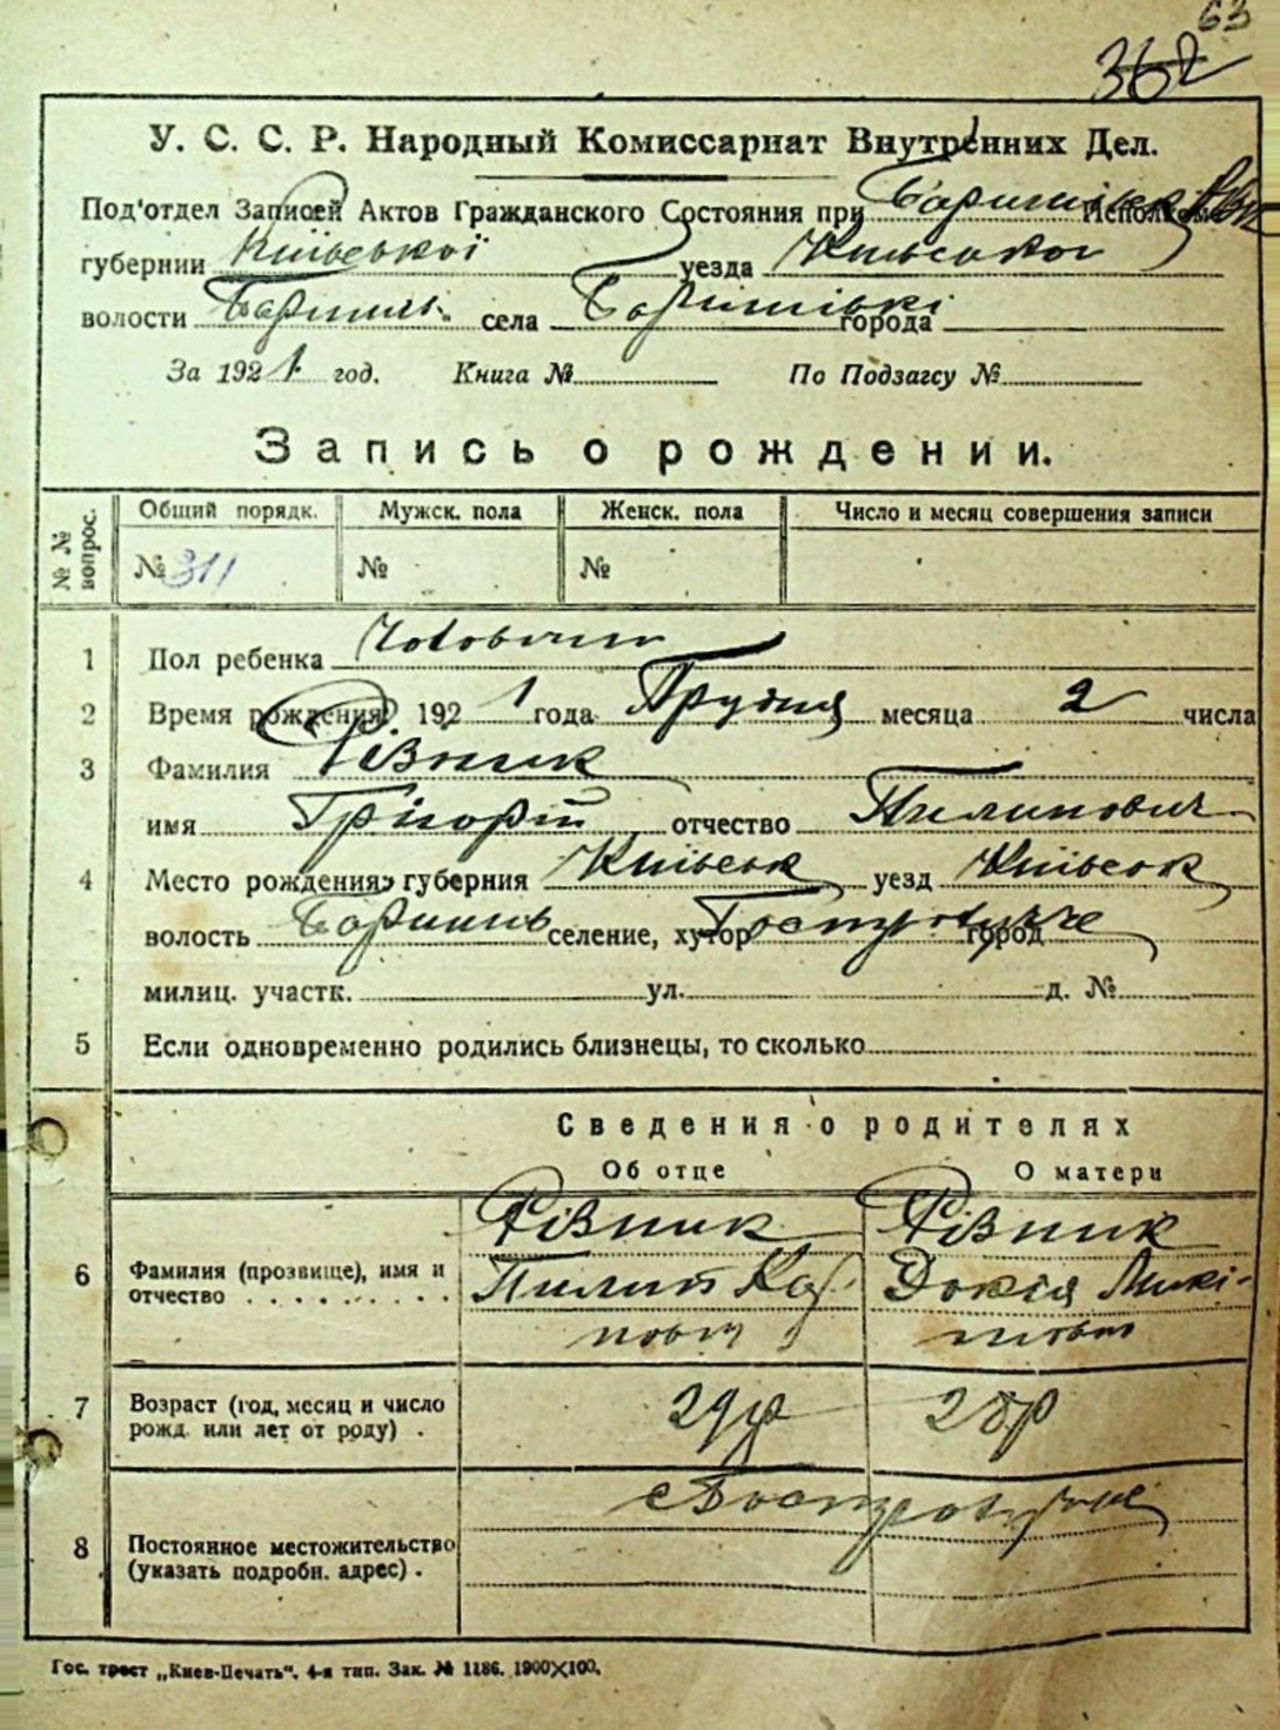 63
362
У. С. С. Р. Народный Комиссариат Внутренних Дел.
Под'отдел Записей Актов Гражданского Состояния при Исполкоме
губернии Київської уезда Київської
волости Баришпіль. села города
За 1921 год. Книга № По Подзагсу №
Запись о рождении.
№ № вопрос. Общий порядк. Мужск. пола Женск. пола Число и месяц совершения записи
№ 311 № №
1 Пол ребенка Чоловичи
2 Время рождения: 1921 года Грудня месяца 2 числа
3 Фамилия Різник
имя Грігорій отчество Пилипович
4 Место рождения: губерния Київськ уезд Київськ
волость селение, хутор город
милиц. участк. ул. д. №
5 Если одновременно родились близнецы, то сколько
Сведения о родителях
Об отце О матери
6 Фамилия (прозвище), имя и отчество Різник Різник
Пилип Докія Микі-
7 Возраст (год, месяц и число рожд. или лет от роду) . 29р 28р
8 Постоянное местожительство (указать подробн. адрес) .
Гос. трест „Киев-Печать“. 4-я тип. Зак. № 1186. 1900×100.